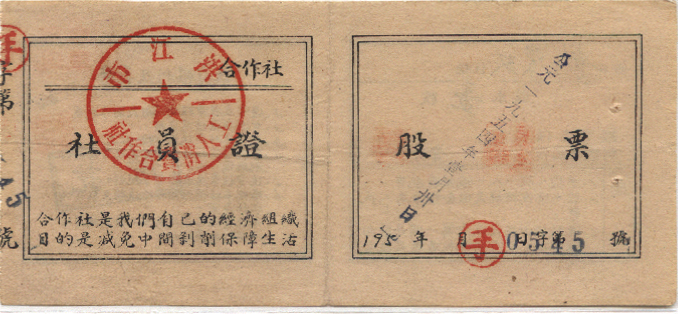 手
字第
45
號
洪江市
工人消費合作社
合作社
社員證
合作社是我們自己的經濟組織
目的是減免中間剥削保障生活
股票
公元一九五四年壹月卅日
195 年 月 日字第 號
手
0545